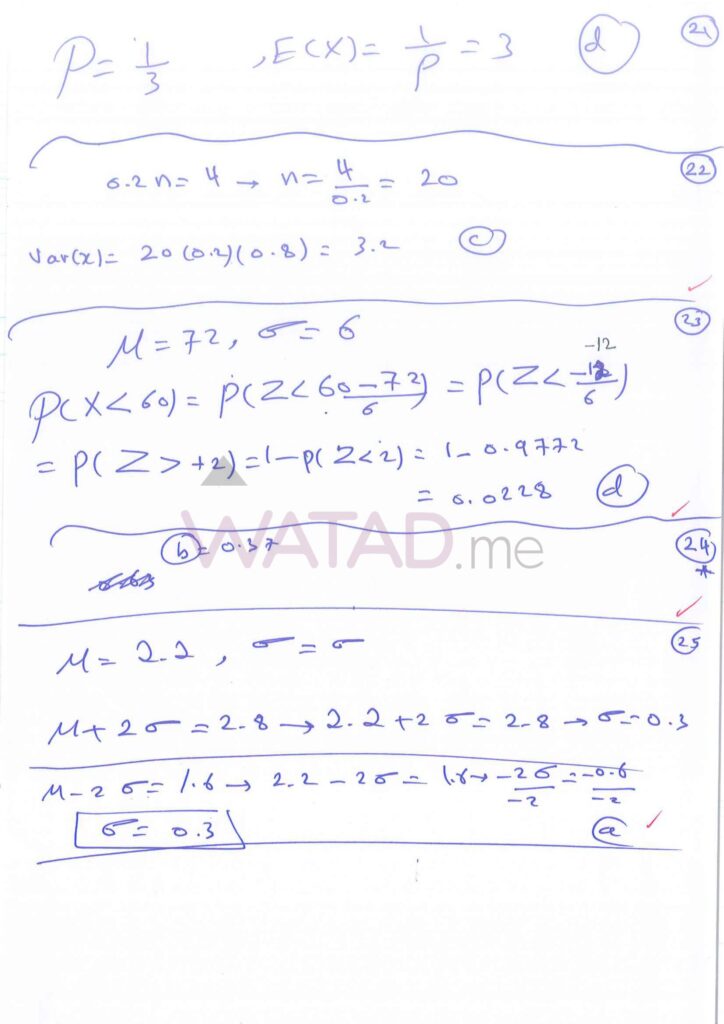 21
P = 1/3 , E(X) = 1/P = 3 d
22
0.2n = 4 → n = 4/0.2 = 20
Var(x) = 20(0.2)(0.8) = 3.2 c
23
M = 72, σ = 6
-12
P(X < 60) = P(Z < 60-72/6) = P(Z < -12/6)
= P(Z > +2) = 1-P(Z<2) = 1-0.9772
= 0.0228 d
24 *
b = 0.37
WATAD.me
25
M = 2.2 , σ = σ
M + 2σ = 2.8 → 2.2 + 2σ = 2.8 → σ = 0.3
M - 2σ = 1.6 → 2.2 - 2σ = 1.6 → -2σ/-2 = -0.6/-2
σ = 0.3 a